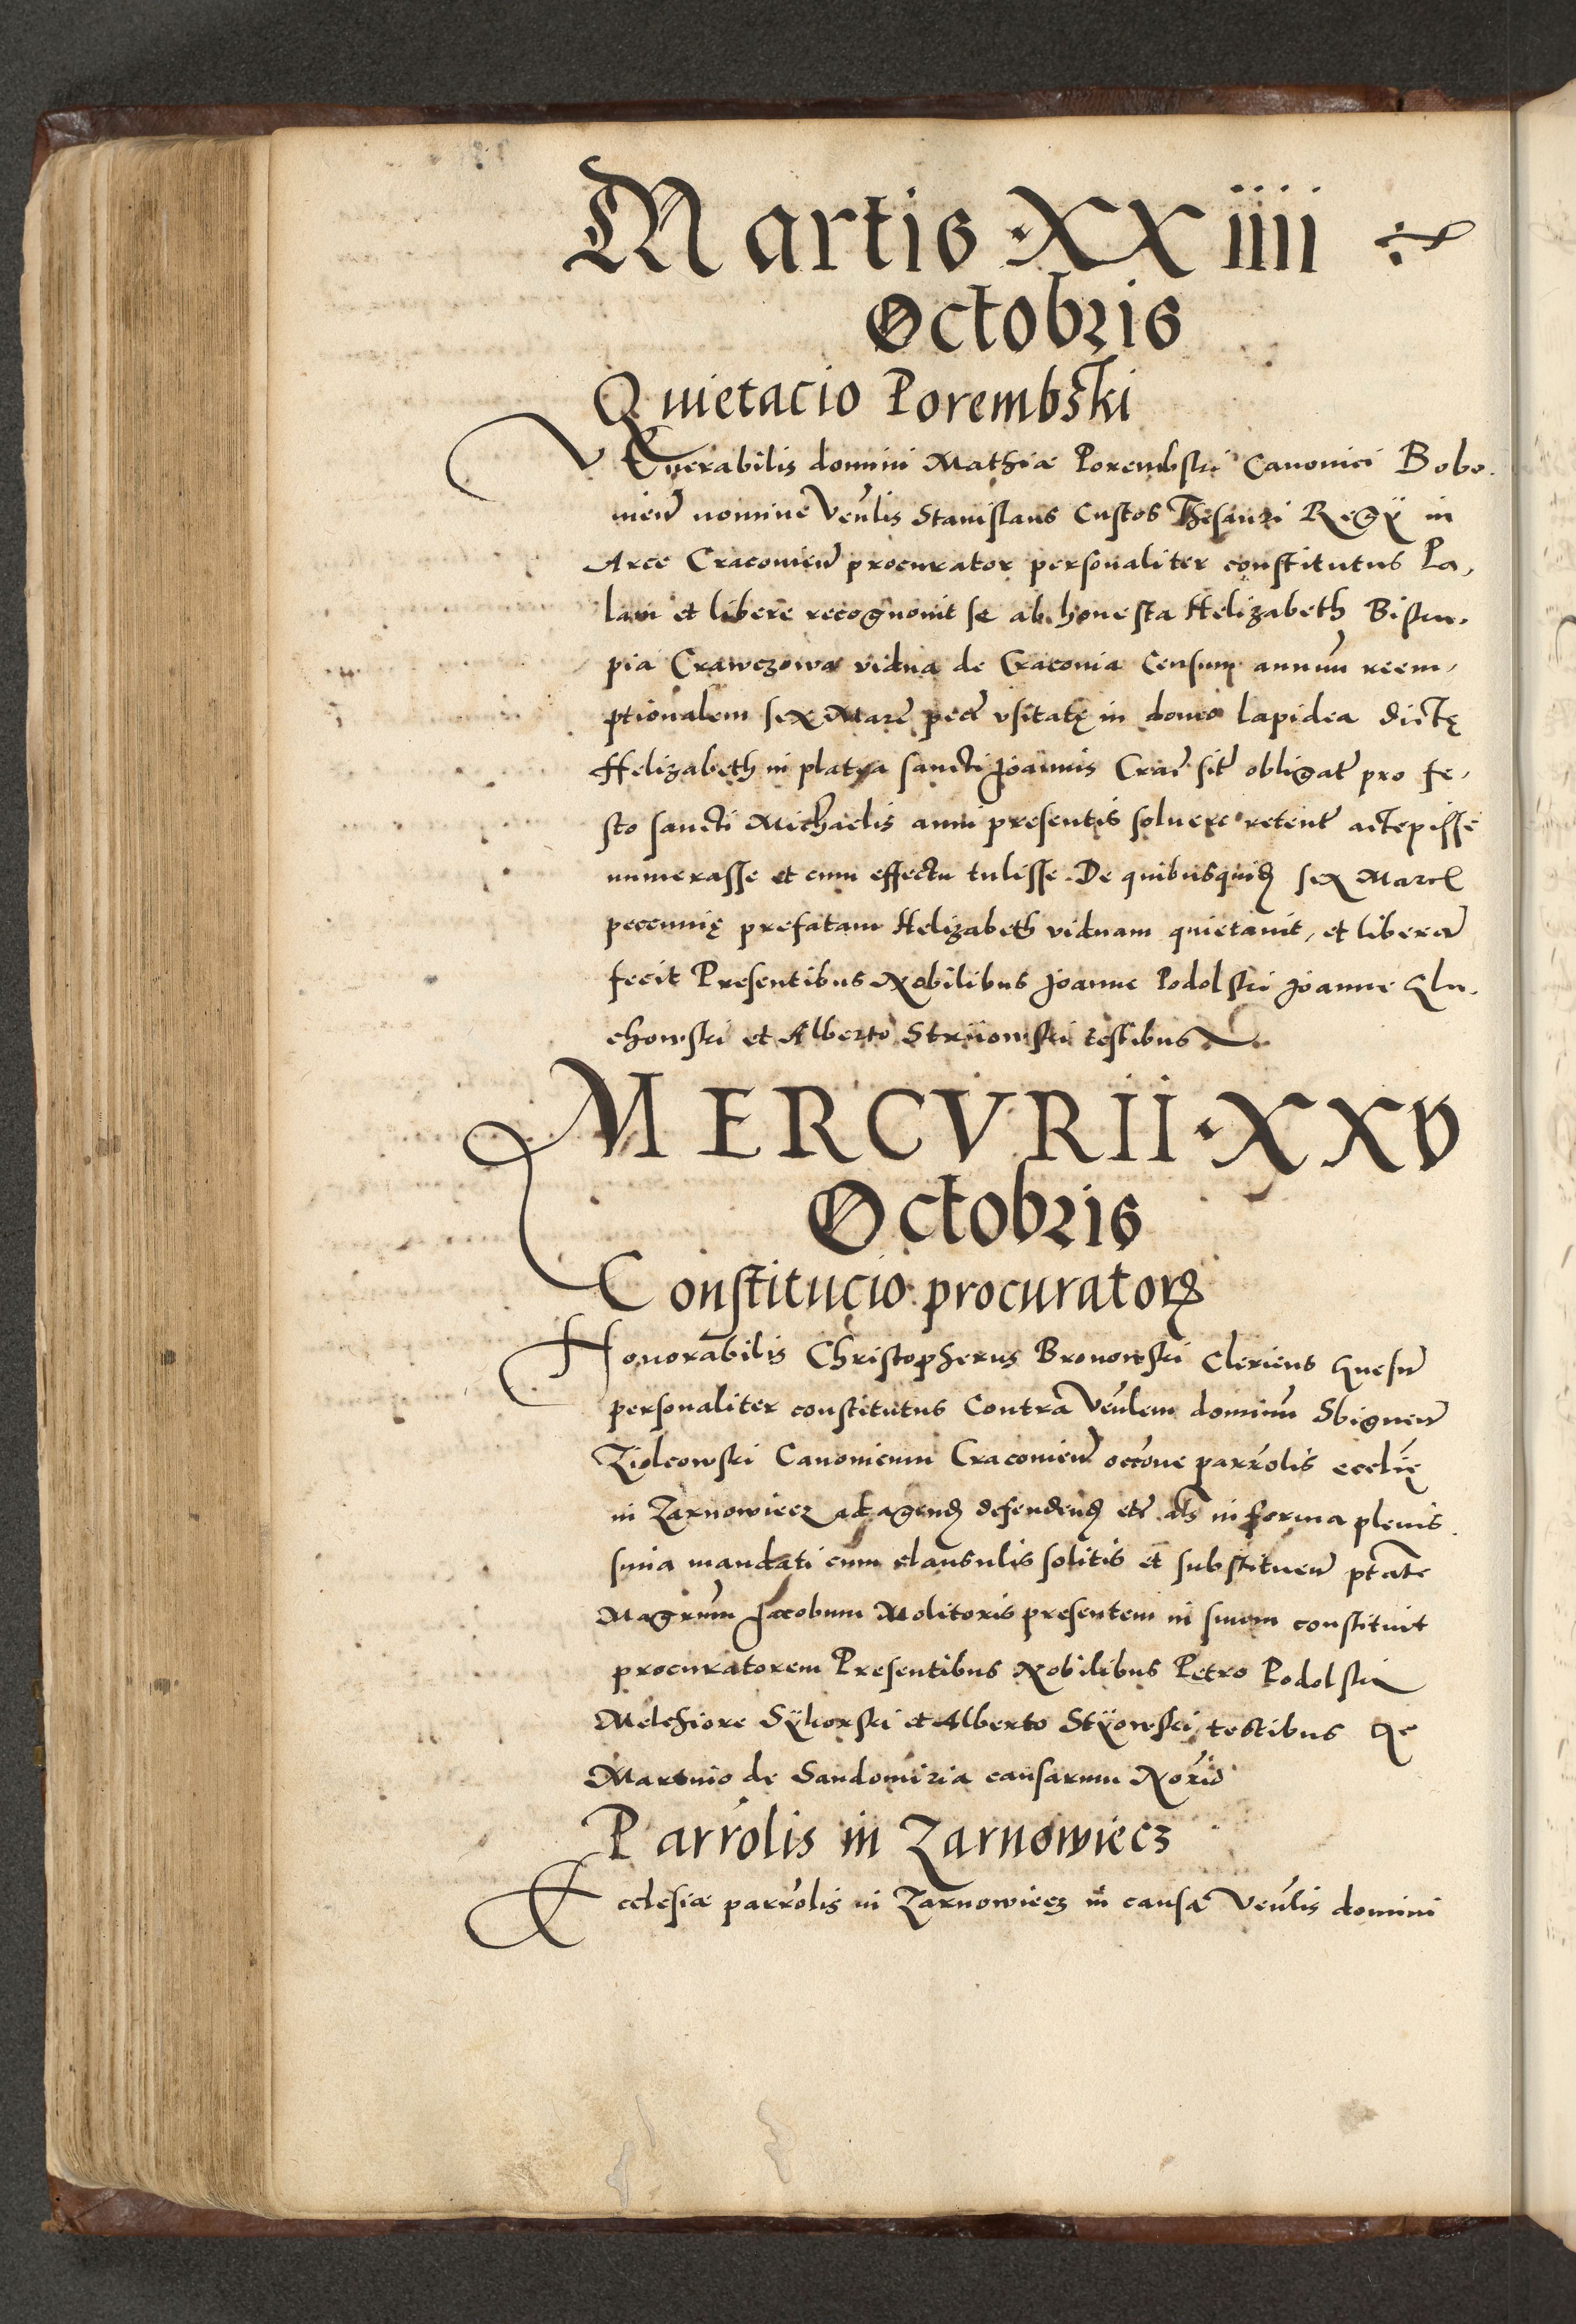 Martis · XX iiii
Octobris
Quietacio Porembski
Venerabilis domini Mathiæ Porembski Canonici Bobo,
mieñ nomine Veñlis Stanislaus Custos Thesauri Regÿ in
Arce Cracovieñ procurator personaliter constitutus Pa,
lam et libere recognouit se ab honesta Helizabeth Biscu,
pia Crawczowa vidua de Cracovia Censum annuũ reem,
ptionalem sex Marc̃ pecũ vsitatę in domo lapidea dictę
Helizabeth in platea sancti Joannis Crac̃ sit̃ obligat̃ pro fe,
sto sancti Michaelis anni presentis soluere retent̃ accepisse
numerasse et cum effectu tulisse. De quibusquidꝫ sex Marc̃
peccunię prefatam Helizabeth viduam quietauit, et liberã
fecit Presentibus Nobilibus Joanne Podolski Joanne Glu,
chowski et Alberto Striiowski testibus
MERCVRII · XXV
Octobris
Constitucio procuratorꝫ
Honorabilis Christopherus Bronowski Clericus Gnesñ
personaliter constitutus Contra Veñlem dominũ Sbigneũ
Ziolcowski Canonicum Cracovieñ occõne parrõlis ecclię
in Zarnowiecz ad agendꝫ defendendꝫ etc̃ als̃ in forma plenis
sima mandati cum clausulis solitis et substituen̄ ptãte
Magrũm Jacobum Molitoris presentem in suum constituit
procuratorem Presentibus Nobilibus Petro Podolski
Melchiore Sÿkorski et Alberto Stÿowski, testibus Et
Martino de Sandomiria causarum Notrio
Parrõlis in Zarnowiecz
Ecclesiæ parrõlis in Zarnowiecz in causa Veñlis domini